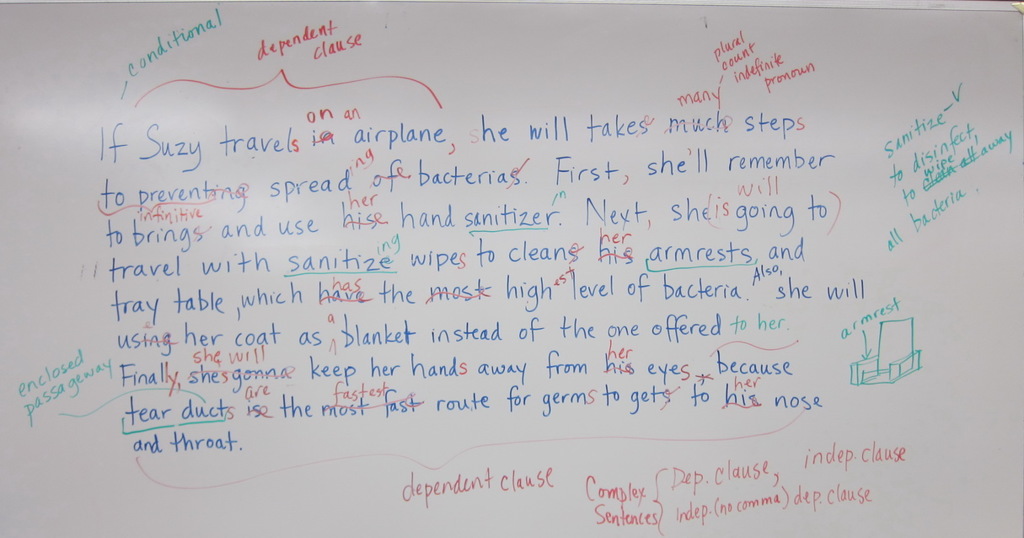 conditional
dependent
clause
plural
count
indefinite
pronoun
many
on an
If Suzy travels in airplane, she will takes much steps
ing
to preventing spread of bacterias. First, she'll remember
infinitive
her
in
will
to brings and use hise hand sanitizer. Next, she (is going to)
ing
her
travel with sanitize wipes to cleans his armrests, and
has
est
Also,
tray table, which have the most high level of bacteria. she will
a
using her coat as blanket instead of the one offered to her.
she will
her
Finally, shes gonna keep her hands away from his eyes, because
are
fastest
her
tear ducts is the most fast route for germs to gets to his nose
and throat.
sanitize-v
to disinfect,
wipe
to clean all away
all bacteria.
armrest
enclosed
passageway
dependent clause
Complex
Sentences
Dep. clause, indep. clause
indep. (no comma) dep. clause